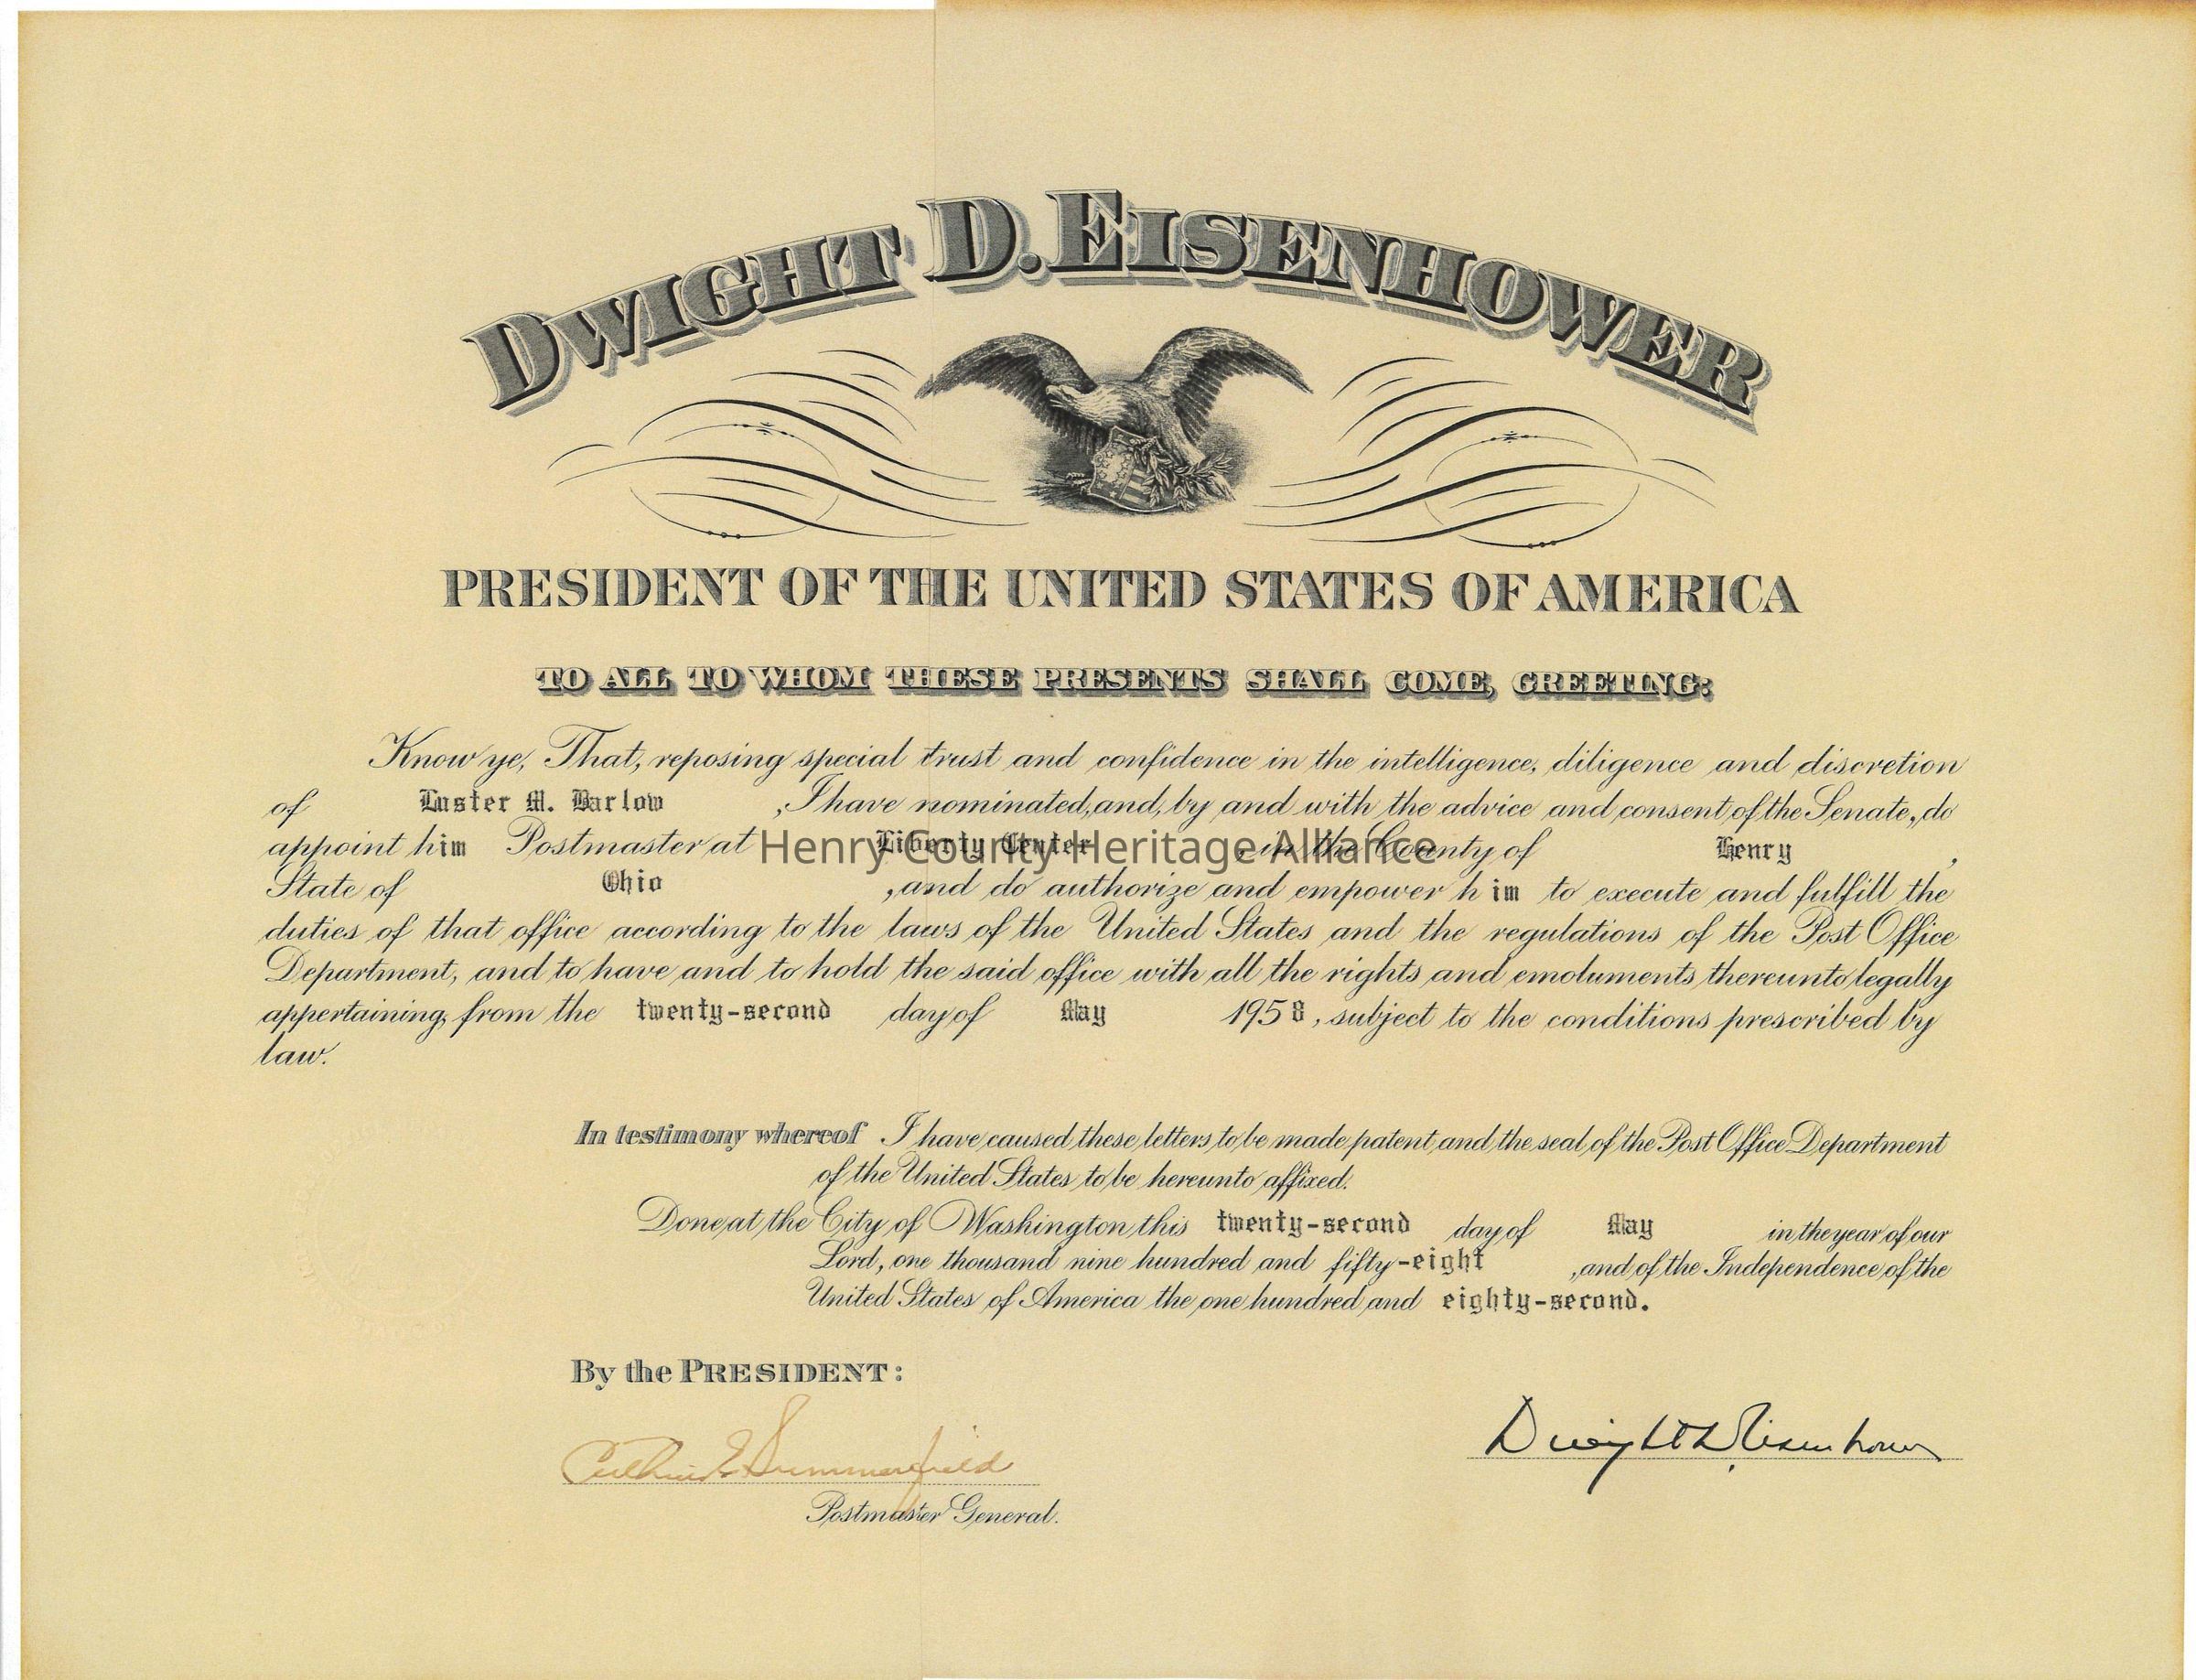 DWIGHT D. EISENHOWER
PRESIDENT OF THE UNITED STATES OF AMERICA
TO ALL TO WHOM THESE PRESENTS SHALL COME, GREETING:
Know ye, That, reposing special trust and confidence in the intelligence, diligence and discretion
of Luster M. Barlow , I have nominated, and, by and with the advice and consent of the Senate, do
appoint him Postmaster at Liberty Center , in the County of Henry ,
Henry County Heritage Alliance
State of Ohio , and do authorize and empower him to execute and fulfill the
duties of that office according to the laws of the United States and the regulations of the Post Office
Department, and to have and to hold the said office with all the rights and emoluments thereunto legally
appertaining, from the twenty-second day of May 1958, subject to the conditions prescribed by
law.
In testimony whereof I have caused these letters to be made patent and the seal of the Post Office Department
of the United States to be hereunto affixed.
Done at the City of Washington this twenty-second day of May in the year of our
Lord, one thousand nine hundred and fifty-eight , and of the Independence of the
United States of America the one hundred and eighty-second.
By the PRESIDENT:
Arthur E Summerfield
Dwight D Eisenhower
Postmaster General.